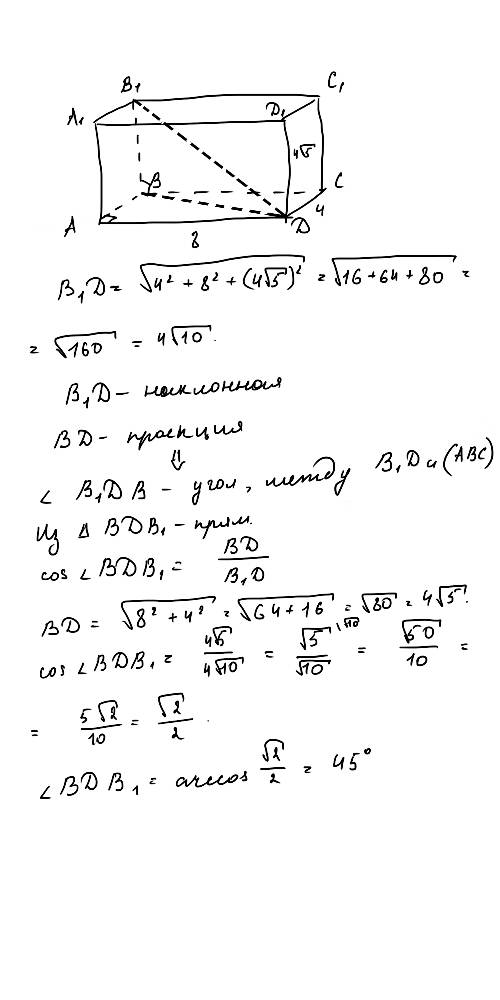 B₁ C₁
A₁ D₁
4√5
B C
A D 4
8
B₁D = √(4² + 8² + (4√5)²) = √(16 + 64 + 80) =
= √160 = 4√10.
B₁D – наклонная
BD – проекция
⇓
∠ B₁DB – угол, между B₁D и (ABC)
Из △ BDB₁ – прям.
cos ∠BDB₁ = BD/B₁D
BD = √(8² + 4²) = √(64 + 16) = √80 = 4√5.
cos ∠BDB₁ = 4√5/4√10 = √5/√10 |√10 = √50/10 =
= 5√2/10 = √2/2.
∠BDB₁ = arccos √2/2 = 45°